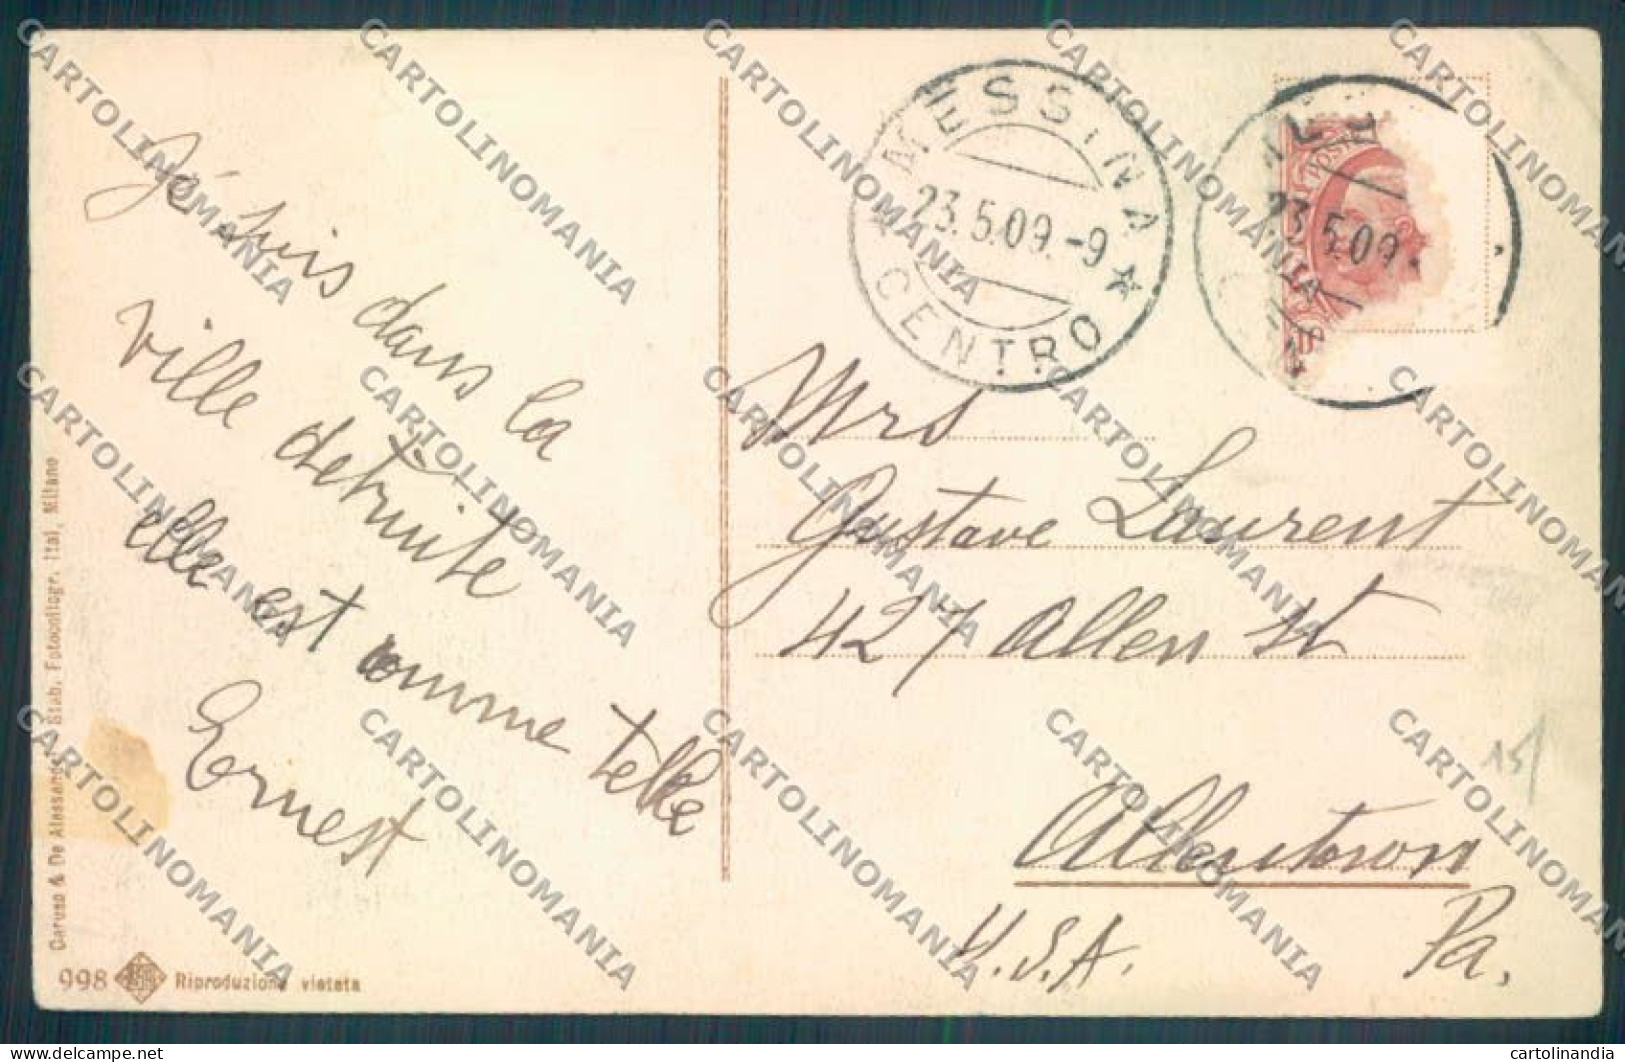 MESSINA
23.5.09.-9
CENTRO
23.5.09
Je suis dans la
ville détruite
elle est comme telle
Ernest
Mrs
Gustave Laurent
427 Allen St
Allentown
Pa.
U.S.A.
15/
Caruso & De Alessandri - Stab. Fotocollogr. Ital, Milano
998
Riproduzione vietata
CARTOLINOMANIA
delcampe.net
cartolinandia